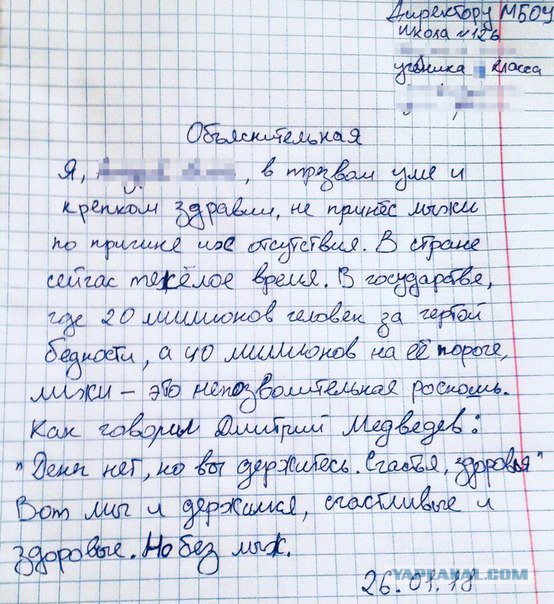 Директору МБОУ
школа №126
ученика класса
Объяснительная
Я, , в трезвом уме и
крепком здравии, не принёс лыжи
по причине их отсутствия. В стране
сейчас тяжёлое время. В государстве,
где 20 миллионов человек за чертой
бедности, а 40 миллионов на её пороге,
лыжи – это непозволительная роскошь.
Как говорил Дмитрий Медведев:
"Денег нет, но вы держитесь. Счастья, здоровья"
Вот мы и держимся, счастливые и
здоровые. Но без лыж.
26.01.18
YAPLAKAL.COM